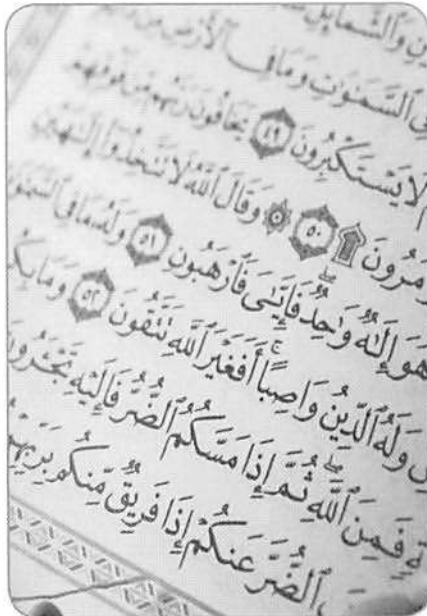 وَٱلشَّمَآئِلِ
ٱلسَّمَٰوَٰتِ وَمَا فِي ٱلْأَرْضِ مِن
لَا يَسْتَكْبِرُونَ ٤٩ يَخَافُونَ رَبَّهُم مِّن فَوْقِهِمْ
ؤْمَرُونَ ۩ ٥٠ ۞ وَقَالَ ٱللَّهُ لَا تَتَّخِذُوٓا۟ إِلَٰهَيْنِ
هُوَ إِلَٰهٌ وَٰحِدٌ ۖ فَإِيَّٰيَ فَٱرْهَبُونِ ٥١ وَلَهُۥ مَا فِي ٱلسَّمَٰوَٰ
وَلَهُ ٱلدِّينُ وَاصِبًا ۚ أَفَغَيْرَ ٱللَّهِ تَتَّقُونَ ٥٢ وَمَا بِكُم
فَمِنَ ٱللَّهِ ۖ ثُمَّ إِذَا مَسَّكُمُ ٱلضُّرُّ فَإِلَيْهِ تَجْـَٔرُونَ
ٱلضُّرَّ عَنكُمْ إِذَا فَرِيقٌ مِّنكُم بِرَبِّهِمْ